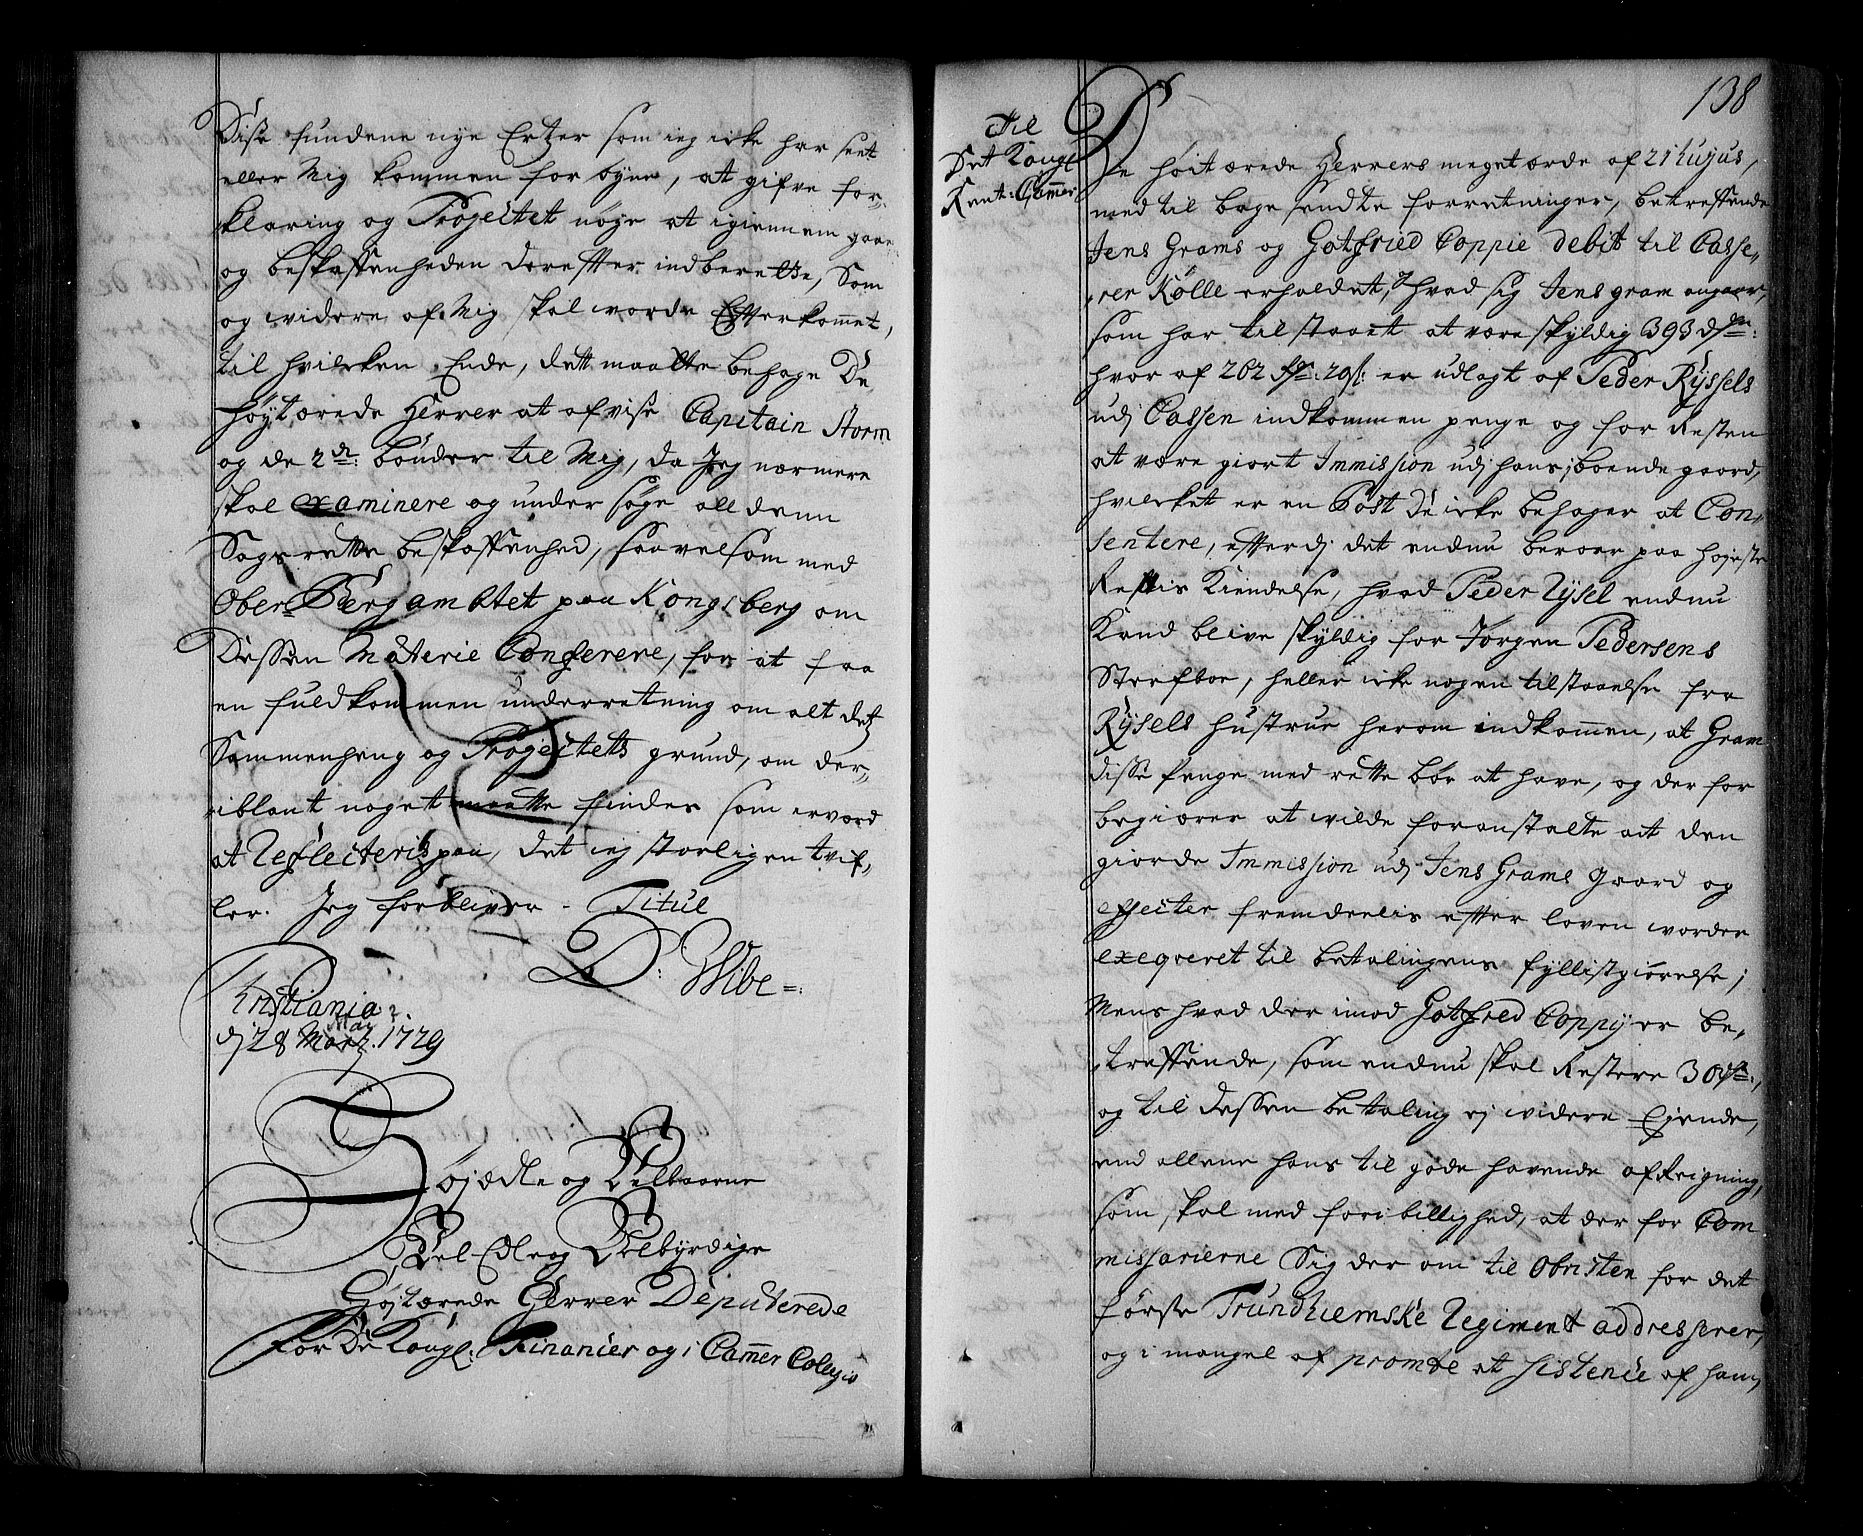 Dise fundene nye Ertzer som ieg icke har seet
eller Mig kommen for øyne, at gifve for-
klaring og Projectet nøye at igiennem gaae
og beskaffenheden derefter indberette, Som
og widere af Mig skal worde Efterkommet,
til hvilcken Ende, dett maatte behage De
høytærede Herrer at afvise Capitain Storm
og de 2de bønder til Mig, da Jeg nærmere
skal examinere og undersøge all denne
Sags rette beskaffenhed, saavelsom med
Ober Bergambtet paa Kongsberg om
Dessen Materie Conferere, for at faa
en fuldkommen underretning om alt det
Sammenheng og Projectets grund, om der-
iblant noget maatte findes som er værd
at Reflecteris paa, det iej storligen tvif-
ler. Jeg forbliver - Titul
D: Wibe
Christiania
d. 28 May 1729
Højædle og Velbaarne
Vel Edle og Velbyrdige
Højtærede Herrer Deputerede
For De Kongl: Financier og i Cammer Colegio
138
Til
Det Kongl
Rent: Cammer
De høitærede Herrers meget ærde af 21 hujus,
med til bage sendte forretninger, betreffende
Jens Grams og Gotfried Coppie debit til Casse-
rer Kølle erholdet, hvad sig Jens gram angaar,
som har tilstaaet at være skyldig 393 dr:
hvor af 262 dr: 20 s: er udlagt af Peder Ryssels
udj Cassen indkommen penge og for Resten
at være giort Immission udj hans iboende gaard,
hvilcket er en Post De icke behager at Con-
sentere, efterdj det endnu beroer paa højeste
Rettis Kiendelse, hvad Peder Rysel endnu
Kand blive skyldig for Jørgen Pedersens
Sterfboe, heller icke nogen tilstaaelse fra
Rysels hustrue herom indkommen, at Gram
disse Penge med rette bør at have, og der for
begiærer at wilde foranstalte at den
giorde Immission udj Jens Grams Gaard og
effecter fremdeelis efter loven worder
exeqveret til betalingens fyllistgiørelse;
Mens hvad der imod Gotfred Coppy er be-
treffende, som endnu skal Restere 30 dr:,
og til dessen betaling ej widere Ejende,
end allene hans til gode havende afreigning,
som skal med føri billighed, at der for Com
missarierne Sig der om til Obristen for det
første Trundhiemske Regiment addresserer,
og i mangel af promte at sistence af ham,